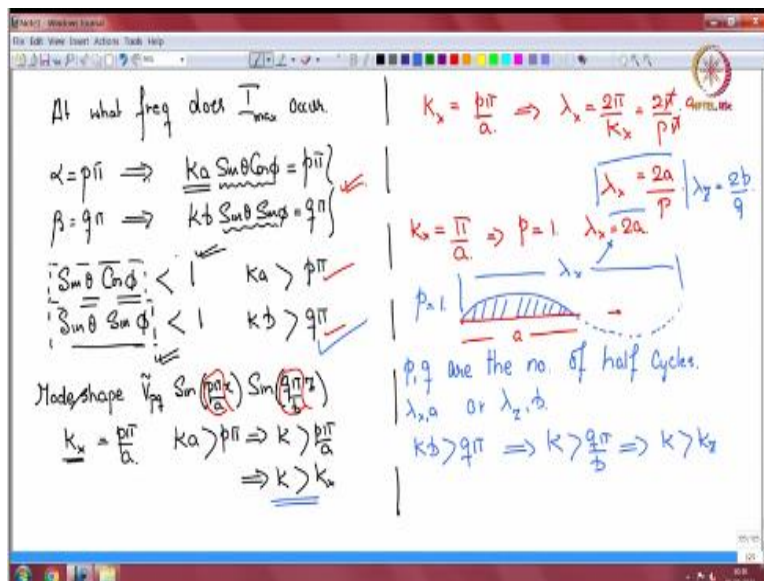 Note1 - Windows Journal
File Edit View Insert Actions Tools Help
At what freq does I_max occur.
α = pπ ⟹ ka Sinθ Cosϕ = pπ
β = qπ ⟹ kb Sinθ Sinϕ = qπ
Sinθ Cosϕ < 1 ka > pπ
Sinθ Sinϕ < 1 kb > qπ
Mode shape Ṽ_pq Sin(pπx/a) Sin(qπz/b)
k_x = pπ/a. ka > pπ ⟹ k > pπ/a
⟹ k > k_x
K_x = pπ/a. ⟹ λ_x = 2π/K_x = 2π/pπ · a
λ_x = 2a/p λ_z = 2b/q
K_x = π/a. ⟹ p = 1. λ_x = 2a.
λ_x
p = 1.
a
p, q are the no. of half cycles.
λ_x, a or λ_z, b.
kb > qπ ⟹ k > qπ/b ⟹ k > k_z